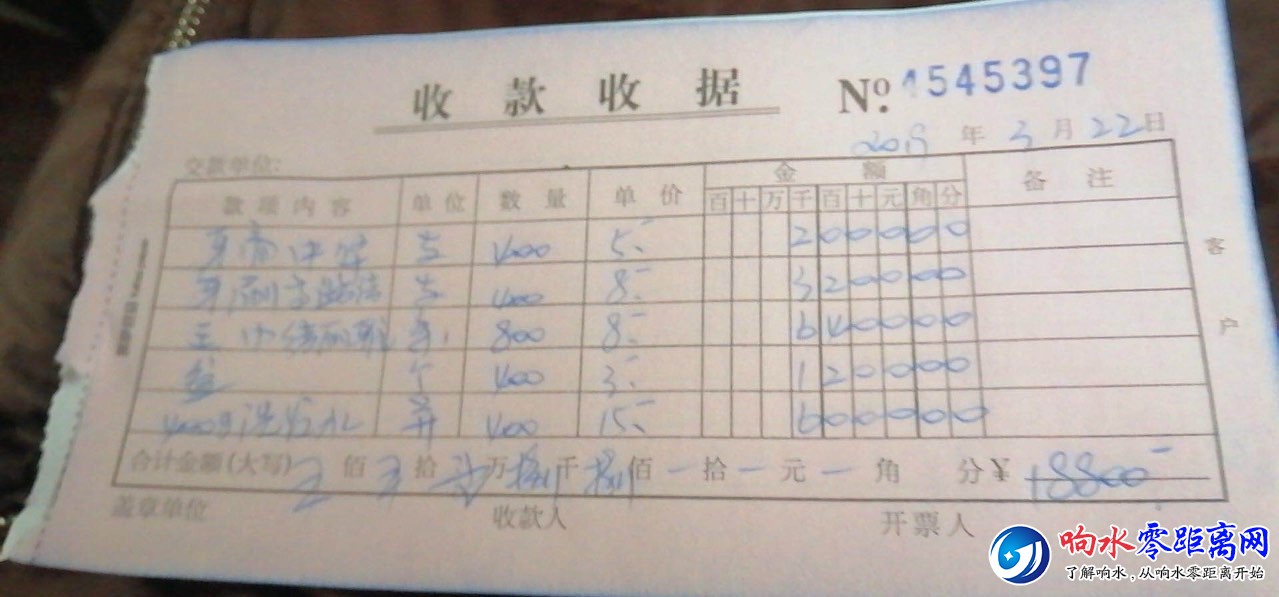 收款收据 No. 1545397
2019年3月22日
交款单位:
款项内容 单位 数量 单价 金额 备注
百十万千百十元角分
牙膏中华 支 400 5.- 200000
牙刷 支 400 8.- 320000
毛巾 条 800 8.- 640000
盆 个 400 3.- 120000
洗发水 瓶 400 15.- 600000
客户
合计金额(大写) 佰 拾 壹万捌千捌佰 拾 元 角 分 ¥ 18800-
盖章单位 收款人 开票人
响水零距离网
了解响水,从响水零距离开始